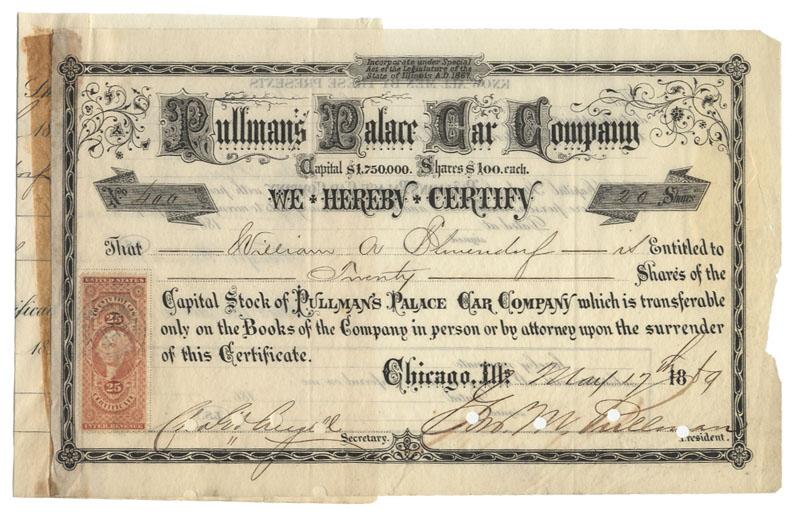 Incorporate under Special
Act of the Legislature of the
State of Illinois A.D. 1867.
KNOW ALL MEN BY THESE PRESENTS
Pullman's Palace Car Company
Capital $1,750.000. Shares $100. each.
No 400
20 Shares
WE HEREBY CERTIFY
That William A is Entitled to
Twenty Shares of the
Capital Stock of PULLMAN'S PALACE CAR COMPANY which is transferable
only on the Books of the Company in person or by attorney upon the surrender
of this Certificate.
UNITED STATES
25
25
CERTIFICATE
INTER. REVENUE
Chicago, Ills May 17th 1869
Secretary. Geo. M. Pullman President.
18
18